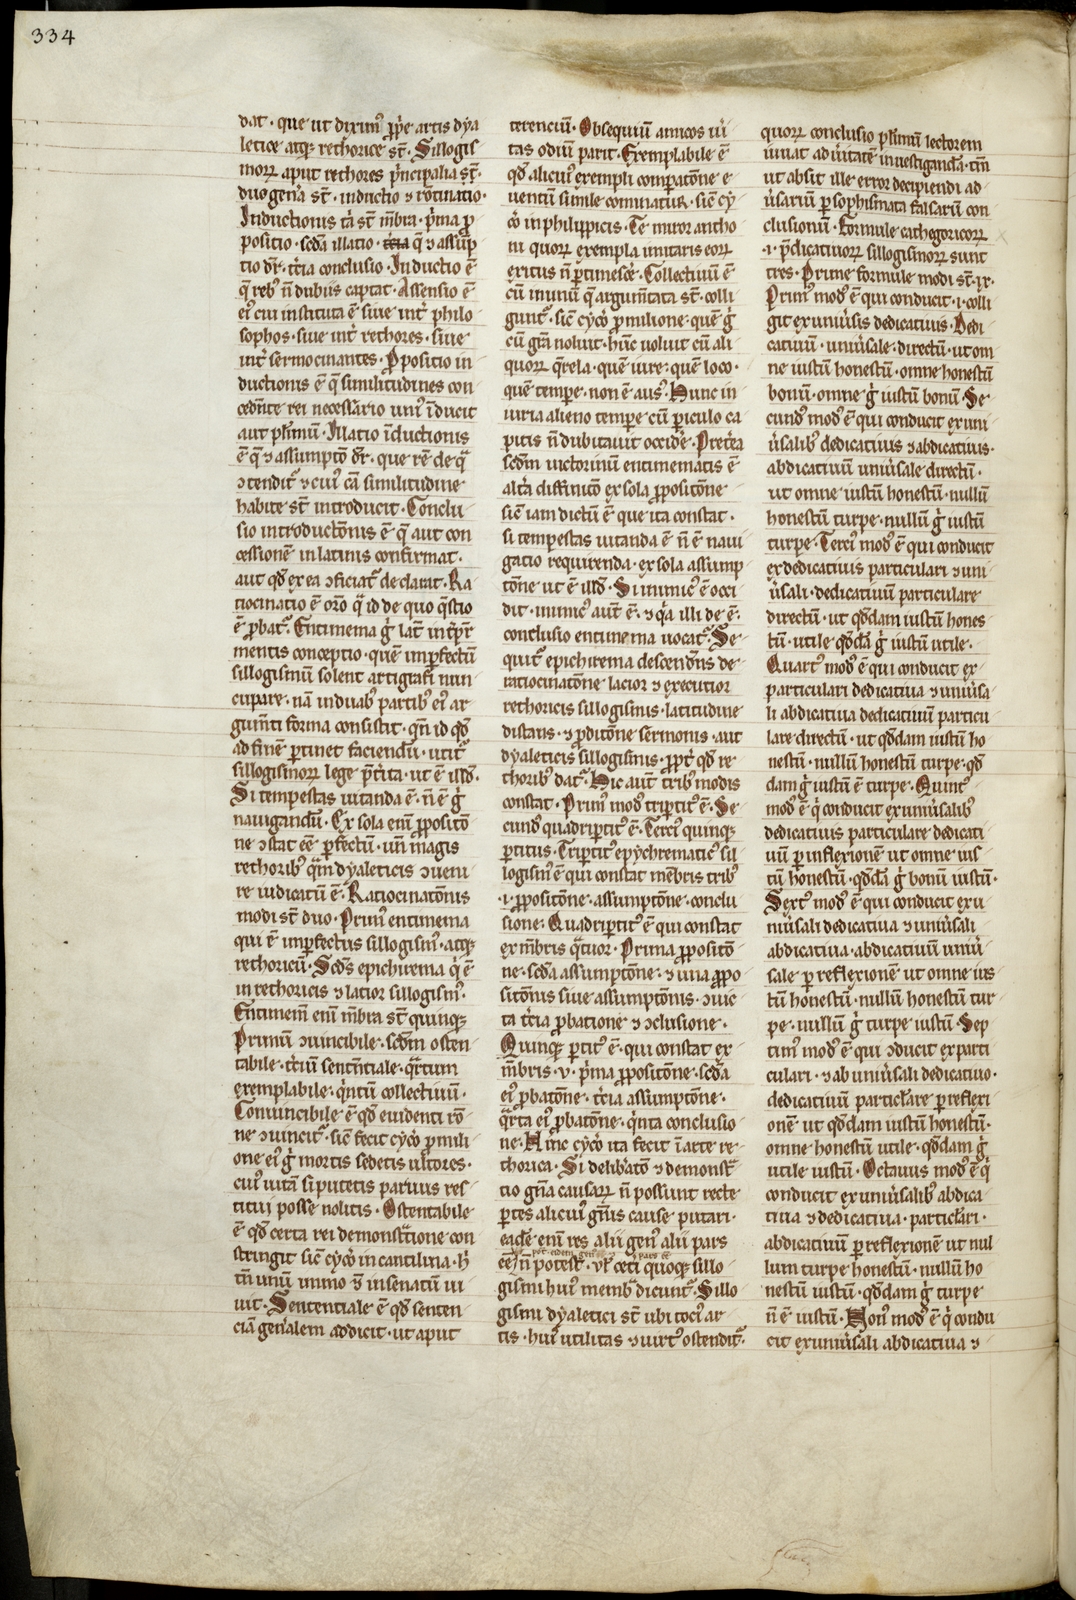 334
dat · que ut dixim᷒ ꝓp̾e artis dẏa
letice atq; rethorice st̄ · Sillogis
moꝝ aput rethores p̾ncipalia st̄ ·
duo gen̾a st̄ · inductio ⁊ rōtinatio ·
Inductionis t̾a st̄ mͥbra · p̾ma ꝓ
positio · scd̾a illatio · t̾cia q̄ ⁊ assūp
tio dr̄ · t̾cia conclusio · Inductio ē
q̄ reb᷒ n̄ dubiis captat · Assensio ē
ei᷒ cui instituta ē siue int̾ philo
sophos · siue int̾ rethores · siue
int̾ sermocinantes · Ꝓpositio in
ductionis ē q̄ similitudines con
ced̄nte rei necess̾ario uni᷒ īducit
aut pl̾imū · Illatio īductionis
ē q̄ ⁊ assumptō dr̄ · que rē de q̄
ꝯtendit᷑ ⁊ cui᷒ cā similitudine
habite st̄ introducit · Conclu
sio introductōnis ē q̄ aut con
cessionē inlatinis confirmat ·
aut qd̄ ex ea ꝯficiat᷑ declarat · Ra
tiocinatio ē orō q̄ id de quo q̄stio
ē ꝓbat᷑ · Entimema g̾ lat̄ int̾p̾r
mentis conceptio · quē imꝑfectū
sillogismū solent artigrafi nun
cupare · nā induab᷒ partib᷒ ei᷒ ar
gum̄ti forma consistit · qn̄ id qd̄
ad finē ꝑtinet faciendū · utit᷑
sillogismoꝝ lege p̄t̾ita · ut ē illd̄ ·
Si tempestas uitanda ē · n̄ ē g̾
nauigandū · Ex sola eni᷒ ꝓpositō
ne ꝯstat ēē ꝑfectū · un̄ magis
rethorib᷒ q̄m dẏaleticis ꝯueni
re iudicatū ē · Ratiocinatōnis
modi st̄ duo · Prim᷒ entimema
qui ē imꝑfectus sillogism᷒ · atq;
rethoricū · Scds̄ epichirema q̾ ē
in rethoricis ⁊ latior sillogism᷒ ·
Entimem̄ eni᷒ mͥbra st̄ quinq;
Primū ꝯuincibile · scd̄m osten
tabile · t̾ciū sentn̄tiale · q̄rtum
exemplabile · q̾ntū collectiuū ·
Conuincibile ē qd̄ euidenti rō
ne ꝯuincit᷑ · sic̄ fecit cẏc̾o ꝓ mili
one ei᷒ g̾ mortis sedetis ultores ·
cui᷒ uitā si putetis par uus res
titui posse nolitis · Ostentabile
ē qd̄ certa rei demonst̄tione con
stringit sic̄ cẏc̾o in cantilina · h̾
tn̄ unū immo ⁊ in senatū ui
uit · Sententiale ē qd̄ senten
ciā gen̾alem addicit · ut aput
terenciū · Obsequiū amicos ū̾i
tas odiū parit · Exemplabile ē
qd̄ alicui᷒ exempli comparatōne e
uentū simile cominatur · sic̄ cẏ
c̾o in philippicis · Te miror antho
ni quoꝝ exempla imitaris eoꝝ
exitus n̄ ꝑtimesc̾e · Collectiuū ē
cū inunū q̄ argum̄tata st̄ · colli
gunt᷑ · sic̄ cẏc̾o ꝓ milione · quē g̾
cū gr̄a noluit · hūc uoluit cū ali
quoꝝ q̄rela · quē iure · quē loco ·
quē tempe · non ē aus᷒ · Hunc in
iuria alieno tempe cū ꝑiculo ca
pitis n̄ dubitauit occid̾e · Preterea
scd̄m uictorinū entimematis ē
alt̾a diffinitō ex sola ꝓpositōne
sic̄ iam dictū ē que ita constat ·
si tempestas uitanda ē n̄ ē naui
gatio requirenda · ex sola assump
tōne ut ē illd̄ · Si inimic᷒ ē occi
dit · inimic᷒ aut̄ ē · ⁊ q̾a illi de ē ·
conclusio entinema uocat᷑ · Se
quit᷑ epichirema descend̄ns de
ratiocinatōne lacior ⁊ executior
rethoricis sillogismis · latitudine
distans · ⁊ ꝓditōne sermonis · aut
dẏaleticis sillogismis · ꝓpt̾ qd̄ re
thorib᷒ dat᷑ · Hic aut̄ trib᷒ modis
constat · Prim᷒ mod᷒ triꝑtit᷒ ē · Se
cund᷒ quadriꝑtit᷒ ē · Terci᷒ quinq;
ꝑtitus · Triꝑtit᷒ epẏchrematic᷒ sil
logism᷒ ē qui constat mēbris trib᷒
· i · ꝓpositōne · assumptōne · conclu
sione · Quadriꝑtit᷒ ē qui constat
ex mͥbris q̄tuor · Prima ꝓpositō
ne · scd̾a assumptōne · ⁊ una ꝓpo
sitōnis siue assumptōnis · ꝯiūc
ta t̾cia ꝓbatione ⁊ ꝯclusione ·
Quinq; ꝑtit᷒ ē · qui constat ex
mͥbris · v · p̾ma ꝓpositōne · scd̾a
ei᷒ ꝓbatōne · t̾cia assumptōne ·
q̄rta ei᷒ ꝓbatōne · q̾nta conclusio
ne · Hinc cẏc̾o ita fecit ī arte re
thorica · Si delib̾atō ⁊ demonst̄
tio gn̄a causaꝝ n̄ possunt recte
ꝑtes alicui᷒ gn̄is cause putari ·
eadē eni᷒ res alii gen᷒ alii pars
ēē n̄ potest · ul̄ cet̾i quoq; sillo
gismi hui᷒ memb̾ dicunt᷑ · Sillo
gismi dẏaletici st̄ ubi toci᷒ ar
tis · hui᷒ utilitas ⁊ uirt᷒ ostendit᷑ ·
quoꝝ conclusio pl̾imū lectorem
iuuat ad ū̾itatē inuestigandā · tm̄
ut absit ille error decipiendi ad
u̾sariū ꝑ sophismata falsariū con
clusionū · Formule cathegoricoꝝ
· i · p̄dicatiuoꝝ sillogismoꝝ sunt
tres · Prime formule modi st̄ · ix ·
Prim᷒ mod᷒ ē qui conducit · i · colli
git ex uniu̾sis dedicatiuis · Dedi
catiuū · uniu̾sale · directū · ut om
ne iustū honestū · omne honestū
bonū · omne g̾ iustū bonū · Se
cund᷒ mod᷒ ē qui conducit ex uni
u̾salib᷒ dedicatiuis ⁊ abdicatiuis ·
abdicatiuū uniu̾sale directū ·
ut omne iustū honestū · nullū
honestū turpe · nullū g̾ iustū
turpe · Terci᷒ mod᷒ ē qui conducit
ex dedicatiuis particulari ⁊ uni
u̾sali · dedicatiuū particulare
directū · ut qd̄dam iustū hones
tū · utile qd̄dā g̾ iustū utile ·
Quart᷒ mod᷒ ē qui conducit ex
particulari dedicatiua ⁊ uniu̾sa
li abdicatiua dedicatiuū particu
lare directū · ut qd̄dam iustū ho
nestū · nullū honestū turpe · qd̄
dam g̾ iustū ē turpe · Quint᷒
mod᷒ ē q̾ conducit ex uniu̾salib᷒
dedicatiuis particulare dedicati
uū ꝑ inflexionē ut omne ius
tū honestū · qd̄dā g̾ bonū iustū ·
Sext᷒ mod᷒ ē qui conducit ex u
niu̾sali dedicatiua ⁊ uniu̾sali
abdicatiua · abdicatiuū uniu̾
sale ꝑ reflexionē ut omne ius
tū honestū · nullū honestū tur
pe · nullū g̾ turpe iustū · Sep
tim᷒ mod᷒ ē qui ꝯducit ex parti
culari · ⁊ ab uniu̾sali dedicatiuo ·
dedicatiuū particl̾are ꝑ reflexi
onē ut qd̄dam iustū honestū ·
omne honestū utile · qd̄dam g̾
utile iustū · Octauus mod᷒ ē q̾
conducit ex uniu̾salib᷒ abdica
tiua ⁊ dedicatiua · particl̾ari ·
abdicatiuū ꝑ reflexionē ut nul
lum turpe honestū · nullū ho
nestū iustū · qd̄dam g̾ turpe
n̄ ē iustū · Non᷒ mod᷒ ē q̾ condu
cit ex uniu̾sali abdicatiua ⁊